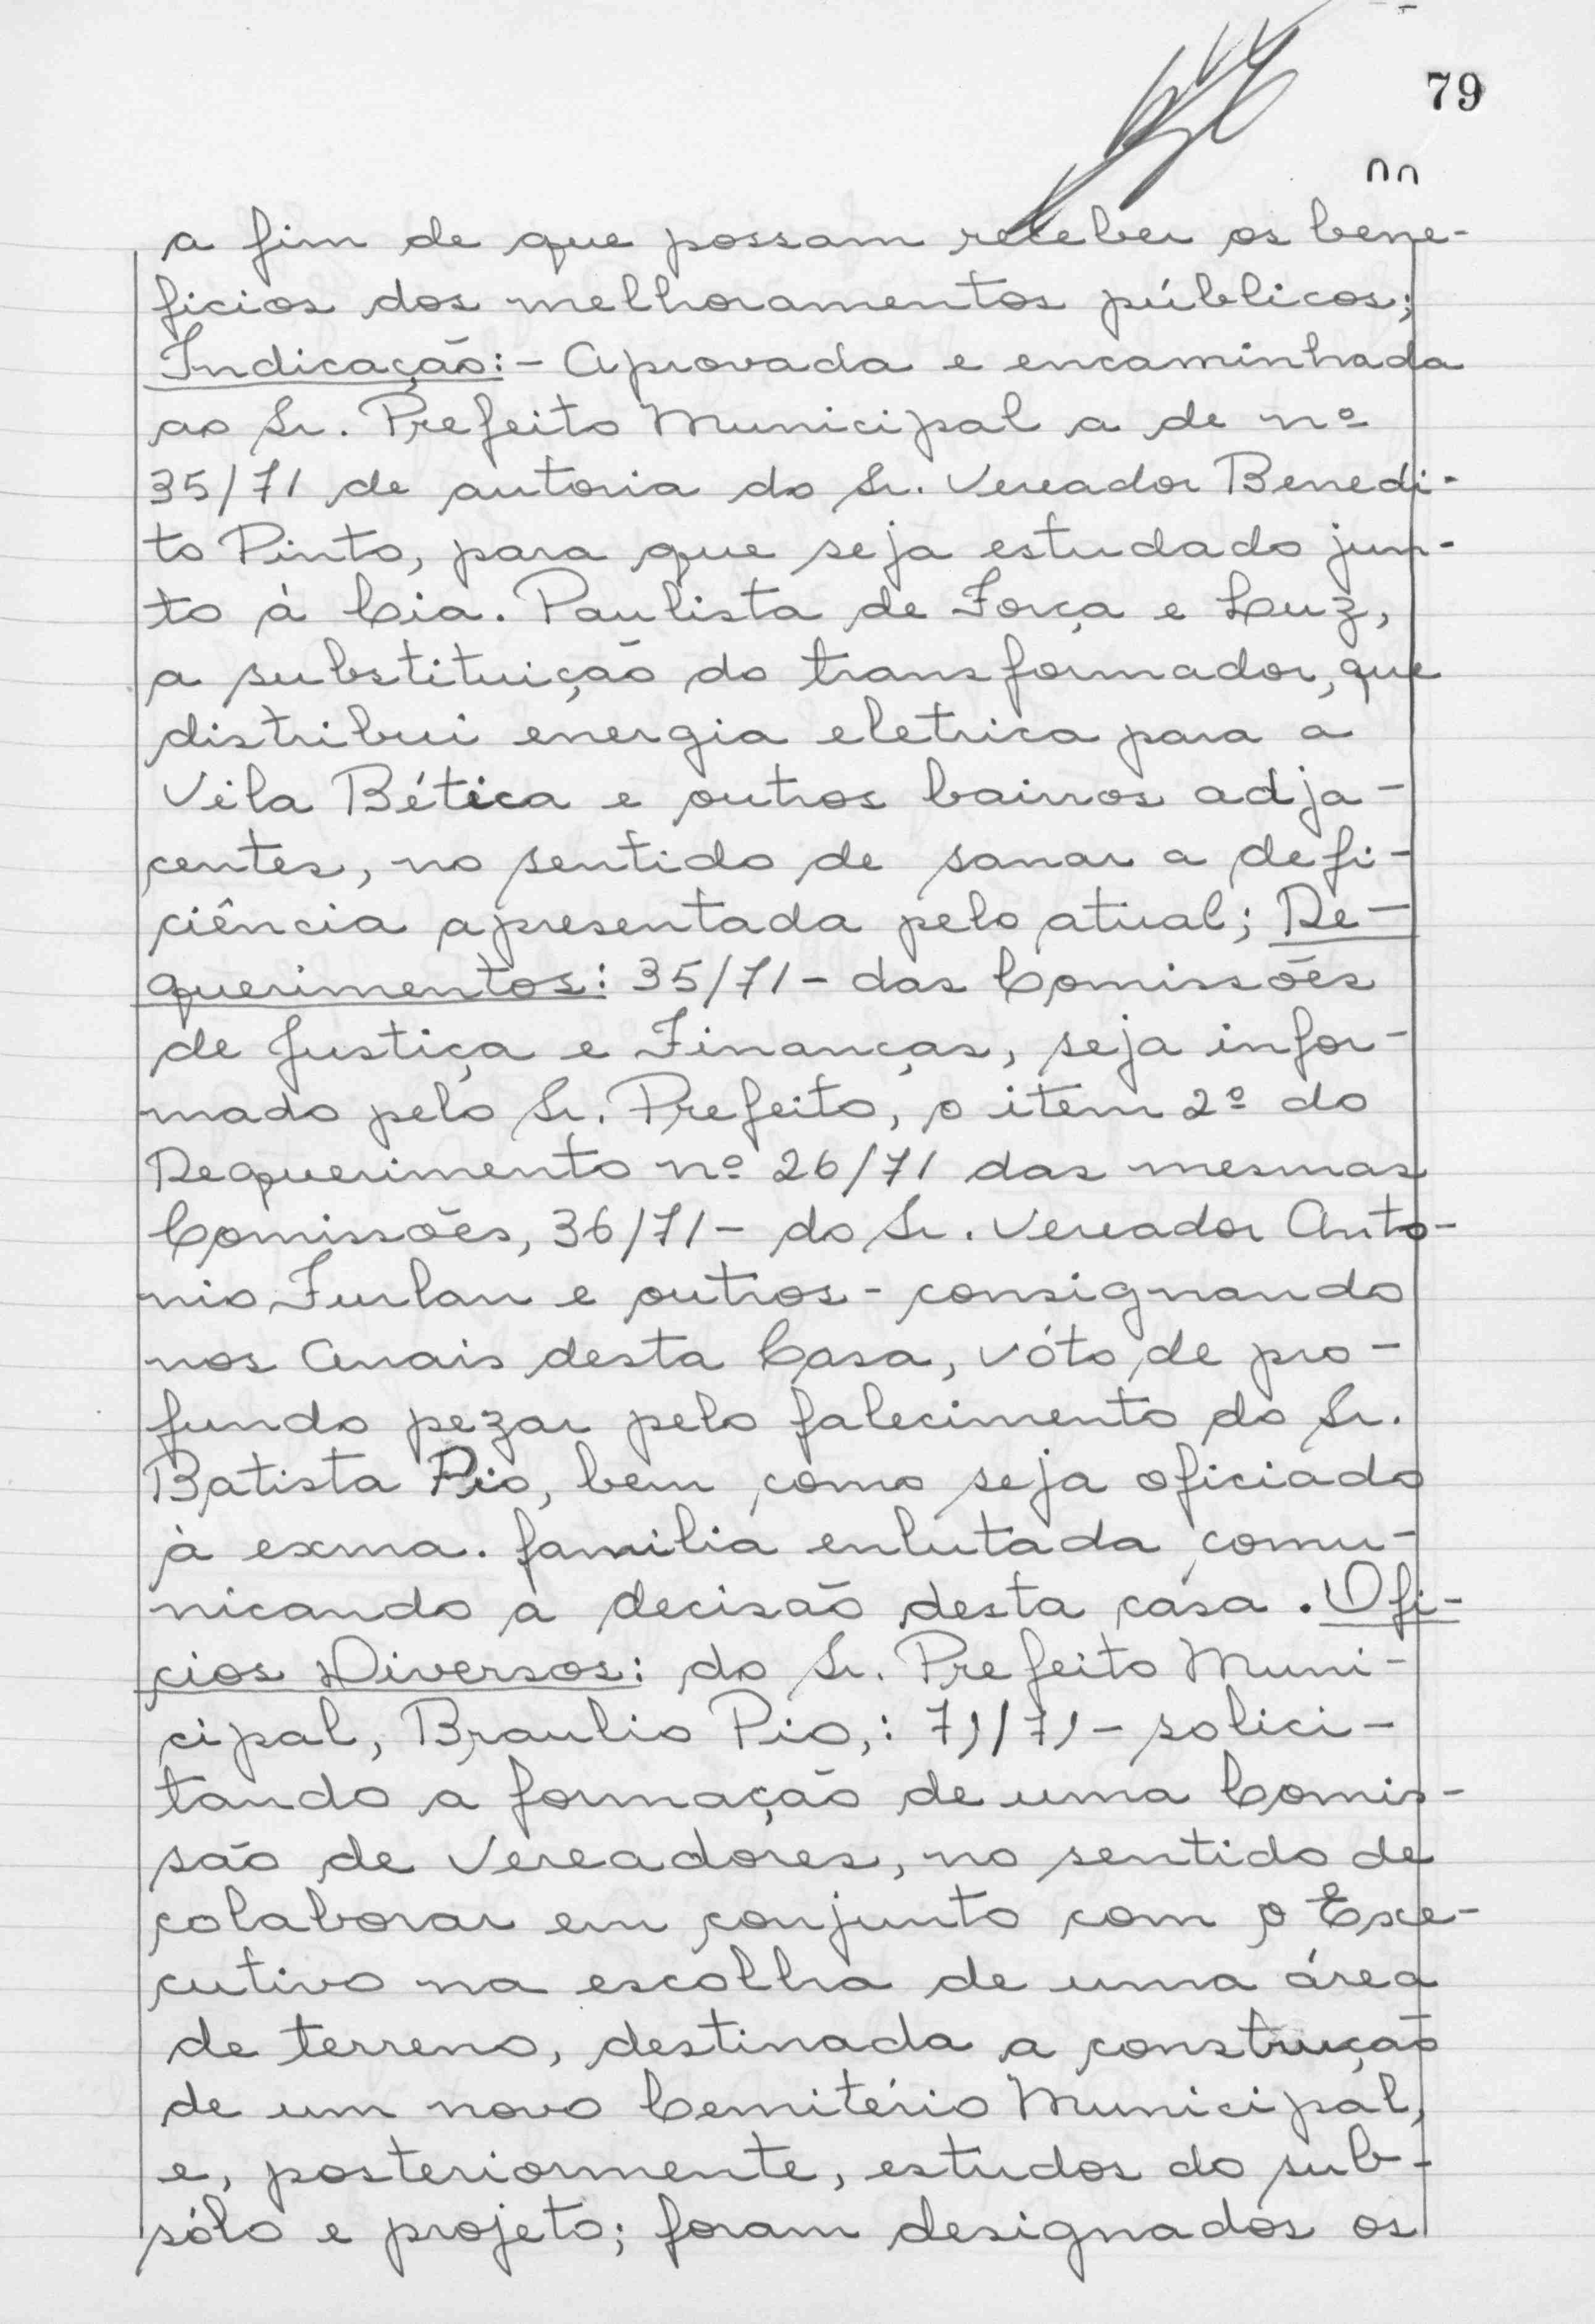 79
a fim de que possam receber os bene-
ficios dos melhoramentos públicos;
Indicação:- Aprovada e encaminhada
ao Sr. Prefeito Municipal a de nº
35/71 de autoria do Sr. Vereador Benedi-
to Pinto, para que seja estudado jun-
to à Cia. Paulista de Força e Luz,
a substituição do transformador, que
distribui energia eletrica para a
Vila Bética e outros bairros adja-
centes, no sentido de sanar a defi-
ciência apresentada pelo atual; Re-
querimentos: 35/71 - das Comissões
de Justiça e Finanças, seja infor-
mado pelo Sr. Prefeito, o item 2º do
Requerimento nº 26/71 das mesmas
Comissões, 36/71 - do Sr. Vereador Anto-
nio Furlan e outros - consignando
nos Anais desta Casa, vóto de pro-
fundo pezar pelo falecimento do Sr.
Batista Pio, bem como seja oficiado
à exma. familia enlutada comu-
nicando a decisão desta casa. Ofi-
cios Diversos: do Sr. Prefeito Muni-
cipal, Braulio Pio,: 71/71 - solici-
tando a formação de uma Comis-
são de Vereadores, no sentido de
colaborar em conjunto com o Exe-
cutivo na escolha de uma área
de terreno, destinada a construção
de um novo Cemitério Municipal,
e, posteriormente, estudos do sub-
sólo e projeto; foram designados os